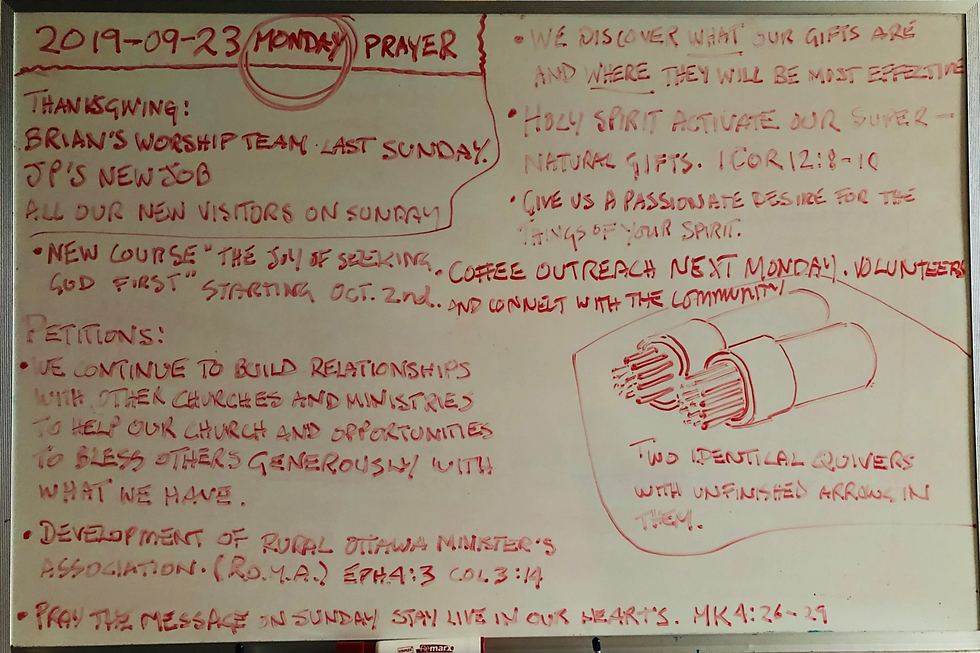 2019-09-23 MONDAY PRAYER
THANKSGIVING:
BRIAN'S WORSHIP TEAM LAST SUNDAY.
JP'S NEW JOB
ALL OUR NEW VISITORS ON SUNDAY
• NEW COURSE "THE JOY OF SEEKING
GOD FIRST" STARTING OCT. 2nd..
PETITIONS:
• WE CONTINUE TO BUILD RELATIONSHIPS
WITH OTHER CHURCHES AND MINISTRIES
TO HELP OUR CHURCH AND OPPORTUNITIES
TO BLESS OTHERS GENEROUSLY WITH
WHAT WE HAVE.
• DEVELOPMENT OF RURAL OTTAWA MINISTER'S
ASSOCIATION. (R.O.M.A.) EPH 4:3 COL 3:14
• PRAY THE MESSAGE ON SUNDAY STAY LIVE IN OUR HEARTS. MK 4:26-29
• WE DISCOVER WHAT OUR GIFTS ARE
AND WHERE THEY WILL BE MOST EFFECTIVE
• HOLY SPIRIT ACTIVATE OUR SUPER-
NATURAL GIFTS. 1 COR 12:8-10
• GIVE US A PASSIONATE DESIRE FOR THE
THINGS OF YOUR SPIRIT.
• COFFEE OUTREACH NEXT MONDAY. VOLUNTEERS
AND CONNECT WITH THE COMMUNITY
TWO IDENTICAL QUIVERS
WITH UNFINISHED ARROWS IN
THEM.
Remarx